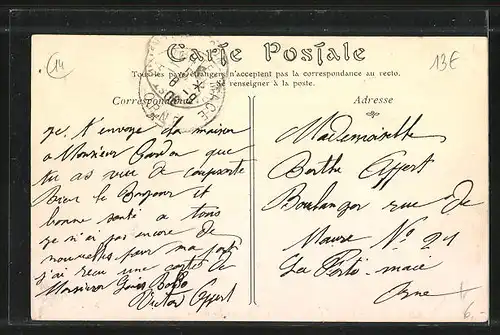 14
13E
Carte Postale
Tous les pays étrangers n'acceptent pas la correspondance au recto.
Se renseigner à la poste.
Correspondance
je t'envoye la maison
a Monsieur que
tu as vue de
Bien le Bonjour et
bonne santé a tous
je n'ai pas encore de
nouvelles pour ma part
j'ai recu une carte de
Monsieur
Victor Appert
Adresse
Mademoiselle
Berthe Appert
Boulanger rue de
No 21
La Ferté-macé
Orne
6,-